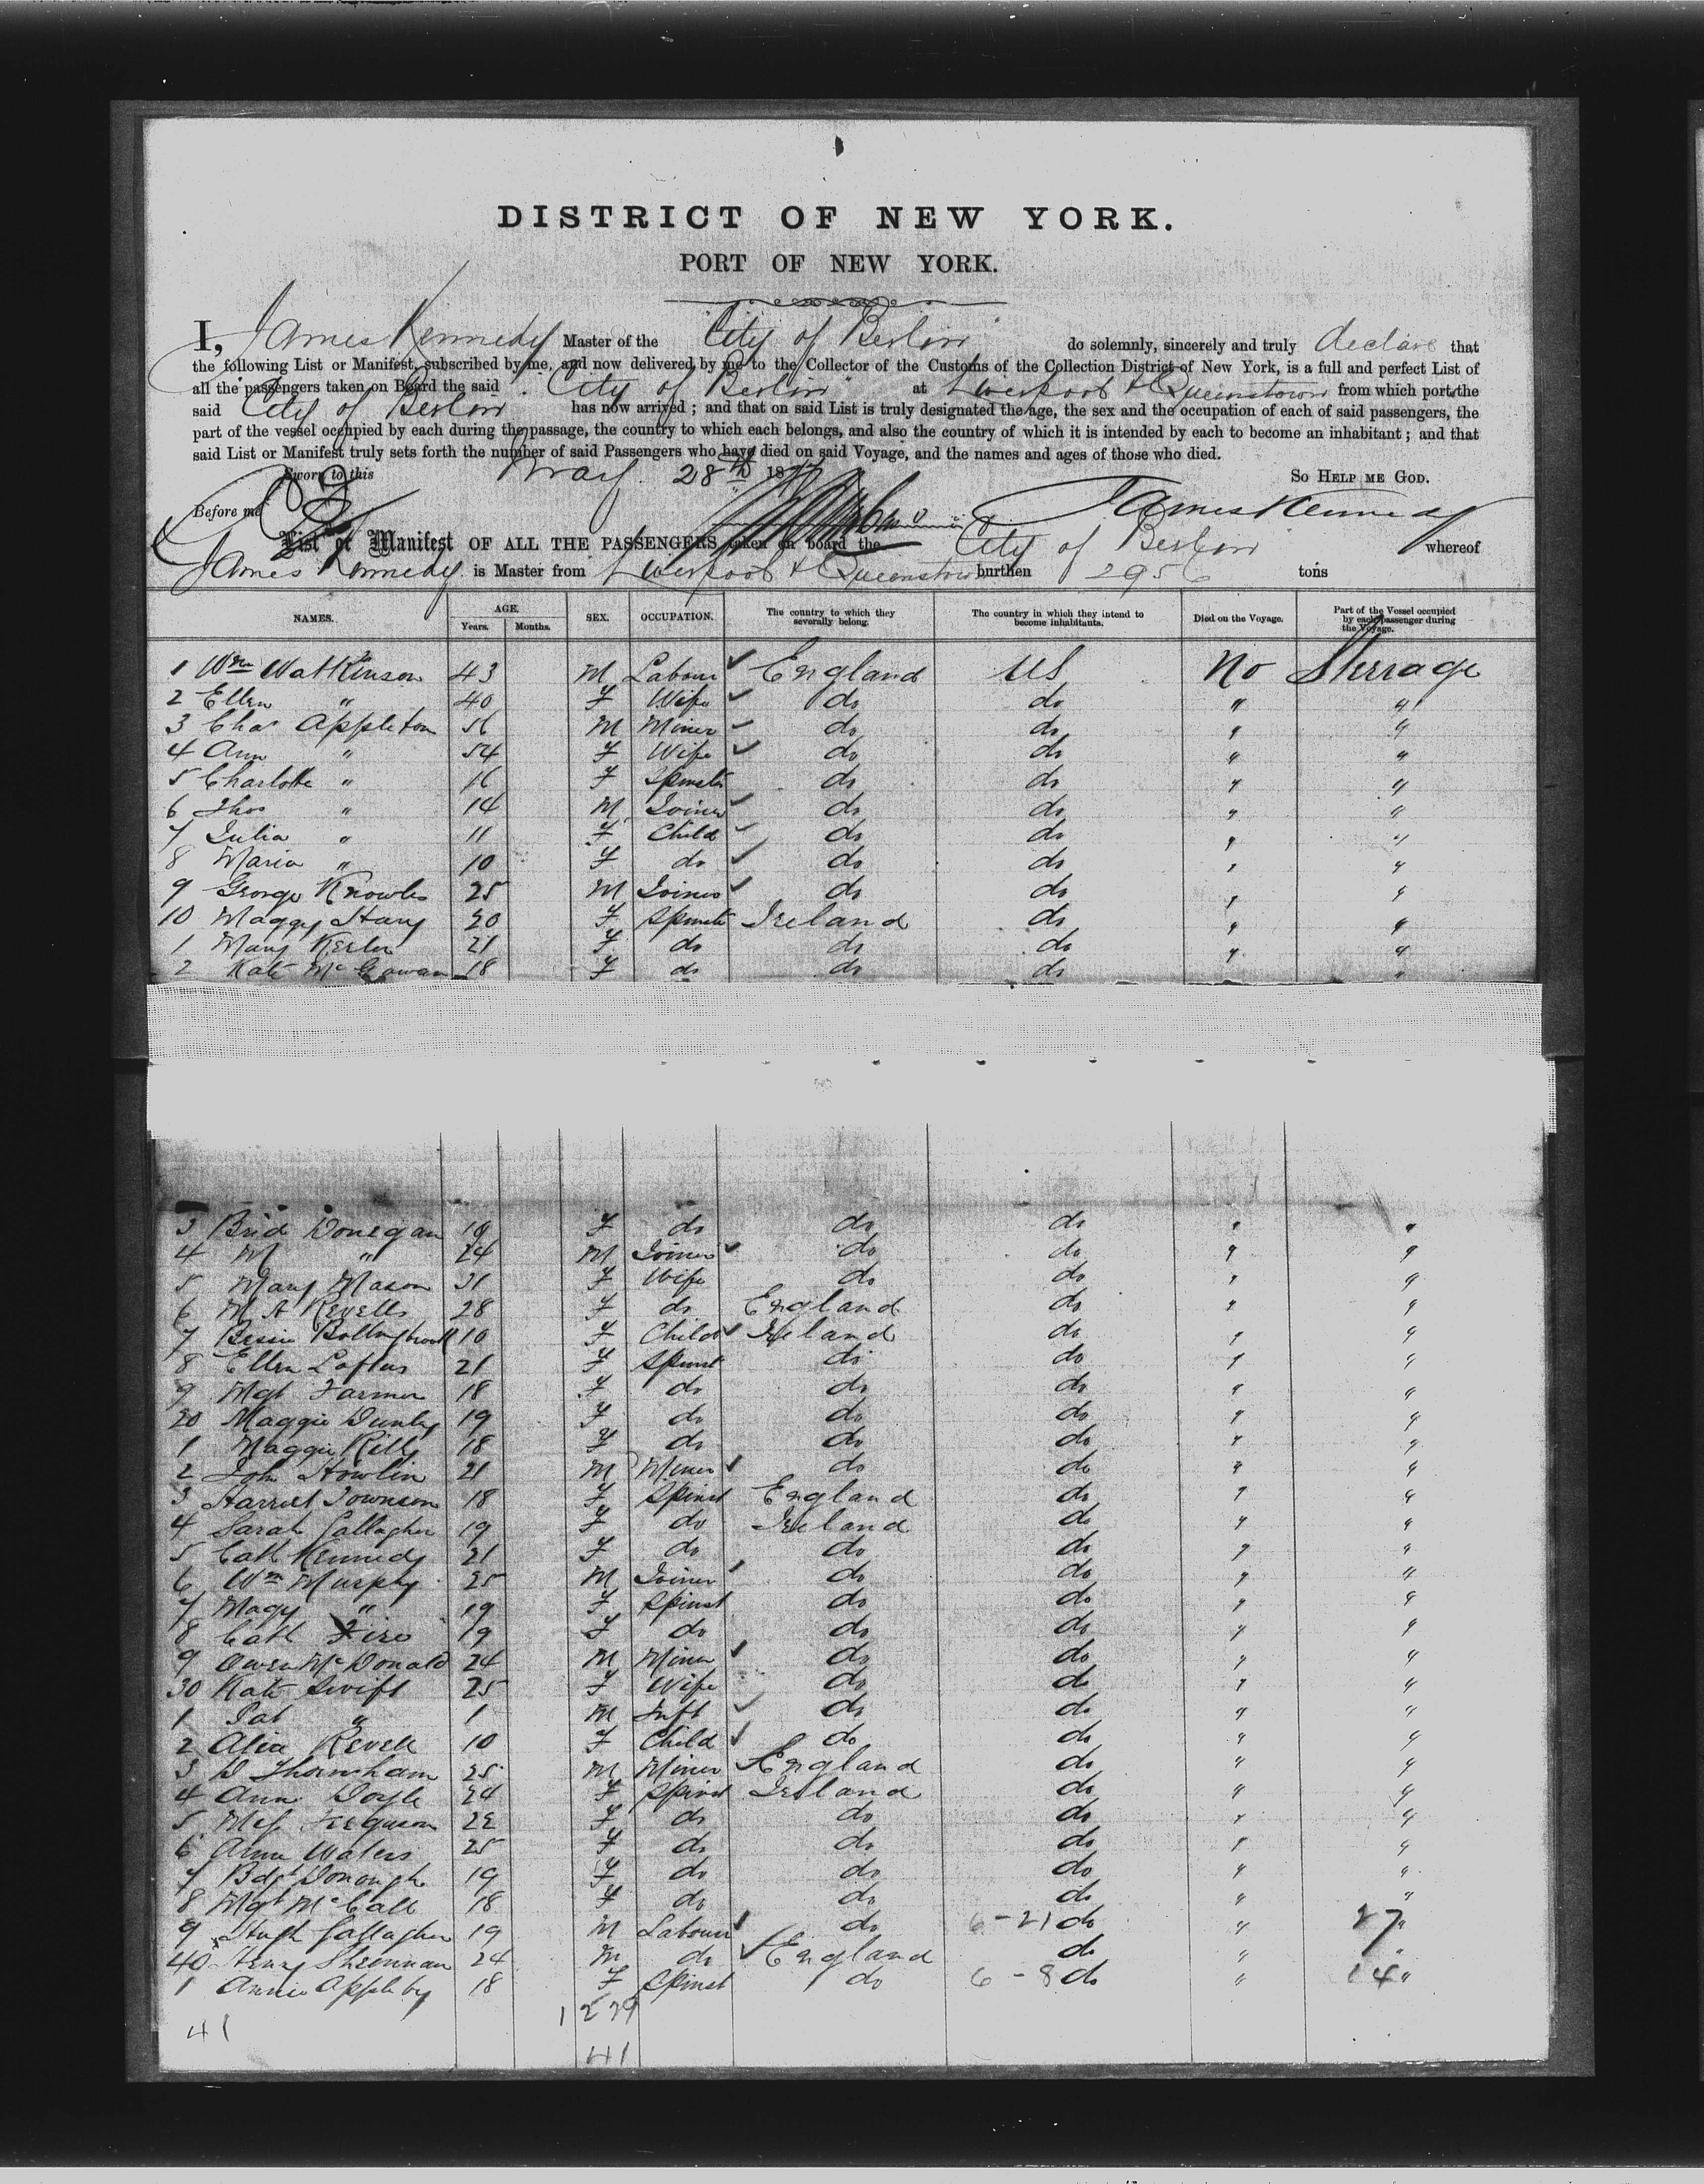 DISTRICT OF NEW YORK.
PORT OF NEW YORK.
I, James Kennedy Master of the "City of Berlin" do solemnly, sincerely and truly declare that
the following List or Manifest, subscribed by me, and now delivered by me to the Collector of the Customs of the Collection District of New York, is a full and perfect List of
all the passengers taken on Board the said "City of Berlin" at Liverpool & Queenstown from which port the
said City of Berlin has now arrived; and that on said List is truly designated the age, the sex and the occupation of each of said passengers, the
part of the vessel occupied by each during the passage, the country to which each belongs, and also the country of which it is intended by each to become an inhabitant; and that
said List or Manifest truly sets forth the number of said Passengers who have died on said Voyage, and the names and ages of those who died.
Sworn to this May 28th 187 So HELP ME GOD.
Before me James Kennedy
List or Manifest OF ALL THE PASSENGERS taken on board the City of Berlin whereof
James Kennedy is Master from Liverpool & Queenstown burthen 2956 tons
NAMES. AGE. Years. Months. SEX. OCCUPATION. The country to which they severally belong. The country in which they intend to become inhabitants. Died on the Voyage. Part of the Vessel occupied by each passenger during the Voyage.
1 Wm Watkinson 43 M Labour England US No Sterrage
2 Ellen " 40 F Wife do do " "
3 Chas Appleton 56 M Miner do do " "
4 Ann " 54 F Wife do do " "
5 Charlotte " 16 F Spinster do do " "
6 Thos " 14 M Joiner do do " "
7 Julia " 11 F Child do do " "
8 Maria " 10 F do do do " "
9 George Knowles 25 M Joiner do do " "
10 Maggy 20 F Spinster Ireland do " "
1 Mary 21 F do do do " "
2 Kate McGowan 18 F do do do " "
3 Brid Donegan 19 F do do do " "
4 M " 24 M Joiner do do " "
5 Mary Mason 31 F Wife do do " "
6 M A Revells 28 F do England do " "
7 Bessie 10 F Child Ireland do " "
8 Ellen Loftus 21 F Spinst do do " "
9 Mgt Farmer 18 F do do do " "
20 Maggie 19 F do do do " "
1 Maggie 18 F do do do " "
2 John Howlin 21 M Miner do do " "
3 Harriet Townson 18 F Spinst England do " "
4 Sarah Gallagher 19 F do Ireland do " "
5 Cath Kennedy 21 F do do do " "
6 Wm Murphy 25 M Joiner do do " "
7 Magy " 19 F Spinst do do " "
8 Cath 19 F do do do " "
9 Owen McDonald 24 M Miner do do " "
30 Kate Swift 25 F Wife do do " "
1 Pat " 1 M Inft do do " "
2 Revell 10 F Child do do " "
3 D Thornham 25 M Miner England do " "
4 Ann Doyle 24 F Spinst Ireland do " "
5 Ferguson 22 F do do do " "
6 Anne Waters 25 F do do do " "
7 Bdgt Donough 19 F do do do " "
8 Mgt McCall 18 F do do do " "
9 Hugh Gallagher 19 M Labour do 6-21 do " 27 "
40 Henry 24 M do England do " "
1 Annie Appleby 18 F Spinst do 6-8 do " 14 "
41 1 279
41